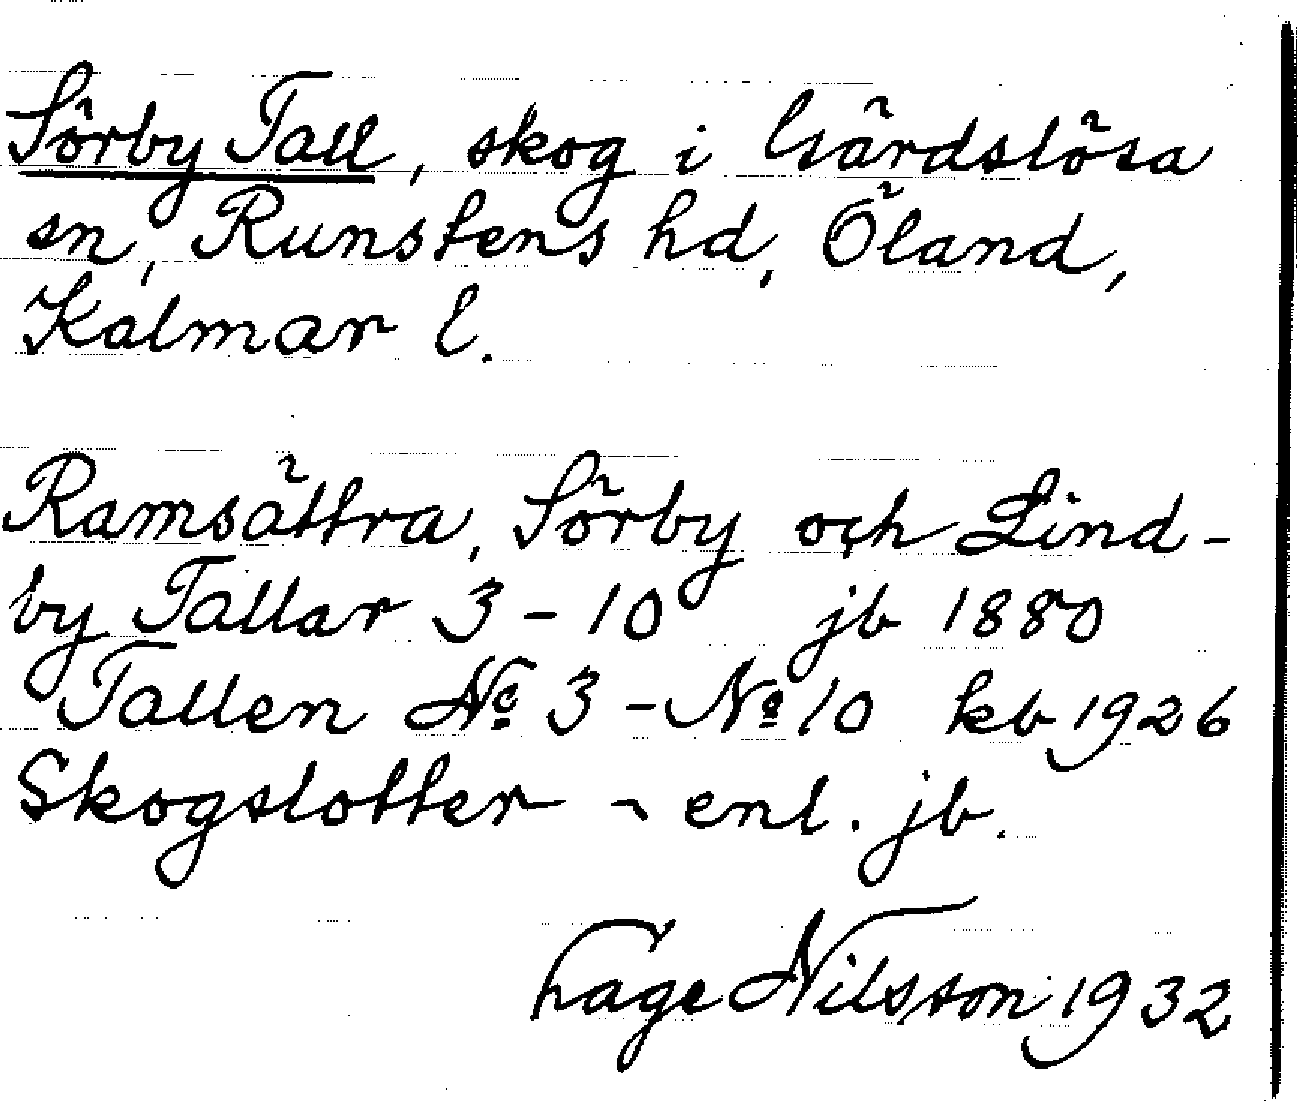 Sörby Tall, skog i Gärdslösa
sn, Runstens hd, Öland,
Kalmar l.
Ramsättra, Sörby och Lind-
by Tallar 3-10 jb 1880
Tallen No 3 - No 10 kb 1926
Skogslotter - enl. jb.
Hage Nilsson 1932